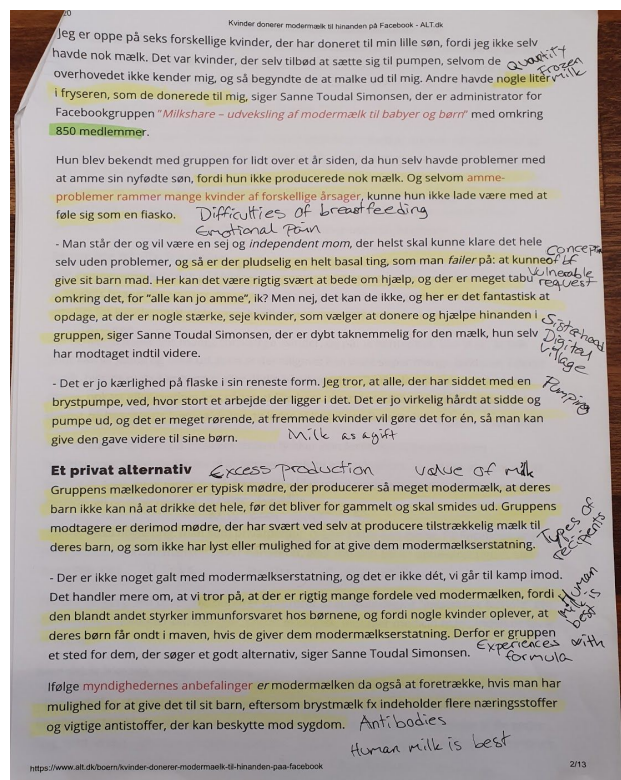 20
Kvinder donerer modermælk til hinanden på Facebook - ALT.dk
Jeg er oppe på seks forskellige kvinder, der har doneret til min lille søn, fordi jeg ikke selv
havde nok mælk. Det var kvinder, der selv tilbød at sætte sig til pumpen, selvom de
Quantity
overhovedet ikke kender mig, og så begyndte de at malke ud til mig. Andre havde nogle liter
Frozen milk
i fryseren, som de donerede til mig, siger Sanne Toudal Simonsen, der er administrator for
Facebookgruppen "Milkshare – udveksling af modermælk til babyer og børn" med omkring
850 medlemmer.
Hun blev bekendt med gruppen for lidt over et år siden, da hun selv havde problemer med
at amme sin nyfødte søn, fordi hun ikke producerede nok mælk. Og selvom amme-
problemer rammer mange kvinder af forskellige årsager, kunne hun ikke lade være med at
føle sig som en fiasko.
Difficulties of breastfeeding
Emotional Pain
- Man står der og vil være en sej og independent mom, der helst skal kunne klare det hele
selv uden problemer, og så er der pludselig en helt basal ting, som man failer på: at kunne
of bf
give sit barn mad. Her kan det være rigtig svært at bede om hjælp, og der er meget tabu
Vulnerable
request
omkring det, for "alle kan jo amme", ik? Men nej, det kan de ikke, og her er det fantastisk at
opdage, at der er nogle stærke, seje kvinder, som vælger at donere og hjælpe hinanden i
Sisterhood
gruppen, siger Sanne Toudal Simonsen, der er dybt taknemmelig for den mælk, hun selv
Digital
Village
har modtaget indtil videre.
- Det er jo kærlighed på flaske i sin reneste form. Jeg tror, at alle, der har siddet med en
Pumping
brystpumpe, ved, hvor stort et arbejde der ligger i det. Det er jo virkelig hårdt at sidde og
pumpe ud, og det er meget rørende, at fremmede kvinder vil gøre det for én, så man kan
give den gave videre til sine børn.
Milk as a gift
Et privat alternativ
Excess production
value of milk
Gruppens mælkedonorer er typisk mødre, der producerer så meget modermælk, at deres
barn ikke kan nå at drikke det hele, før det bliver for gammelt og skal smides ud. Gruppens
modtagere er derimod mødre, der har svært ved selv at producere tilstrækkelig mælk til
deres barn, og som ikke har lyst eller mulighed for at give dem modermælkserstatning.
Types of
recipients
- Der er ikke noget galt med modermælkserstatning, og det er ikke dét, vi går til kamp imod.
Det handler mere om, at vi tror på, at der er rigtig mange fordele ved modermælken, fordi
den blandt andet styrker immunforsvaret hos børnene, og fordi nogle kvinder oplever, at
Human
milk is
best
deres børn får ondt i maven, hvis de giver dem modermælkserstatning. Derfor er gruppen
et sted for dem, der søger et godt alternativ, siger Sanne Toudal Simonsen.
Experiences with
formula
Ifølge myndighedernes anbefalinger er modermælken da også at foretrække, hvis man har
mulighed for at give det til sit barn, eftersom brystmælk fx indeholder flere næringsstoffer
og vigtige antistoffer, der kan beskytte mod sygdom.
Antibodies
Human milk is best
https://www.alt.dk/boern/kvinder-donerer-modermaelk-til-hinanden-paa-facebook
2/13